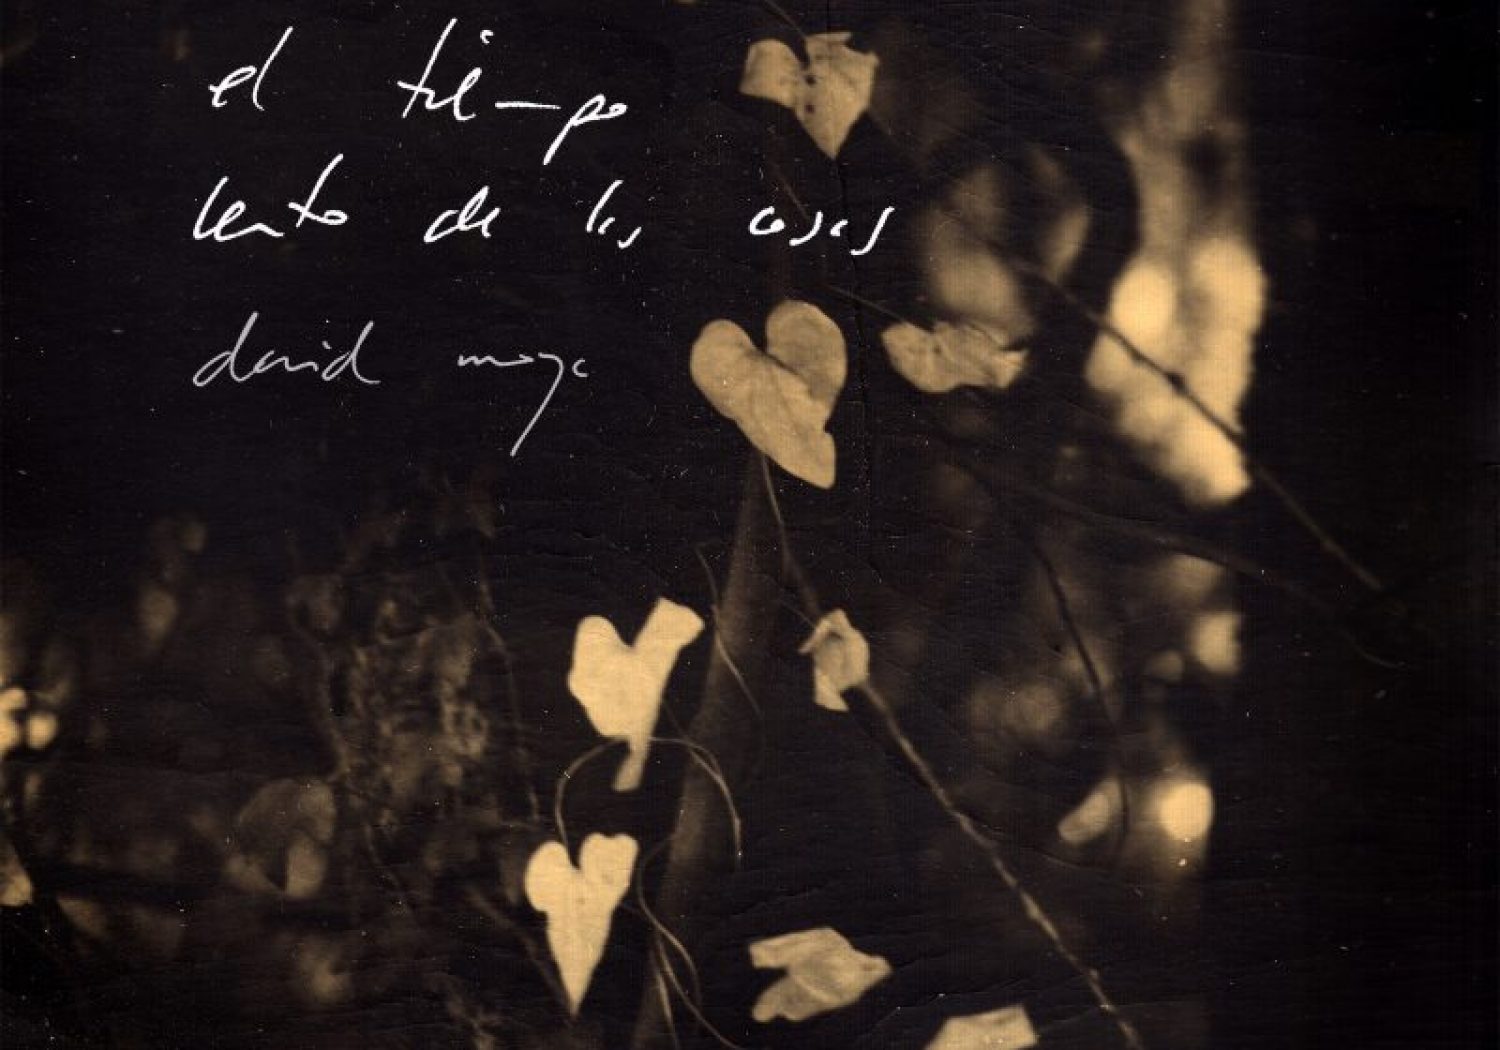 el tiempo
lento de las cosas
david moya